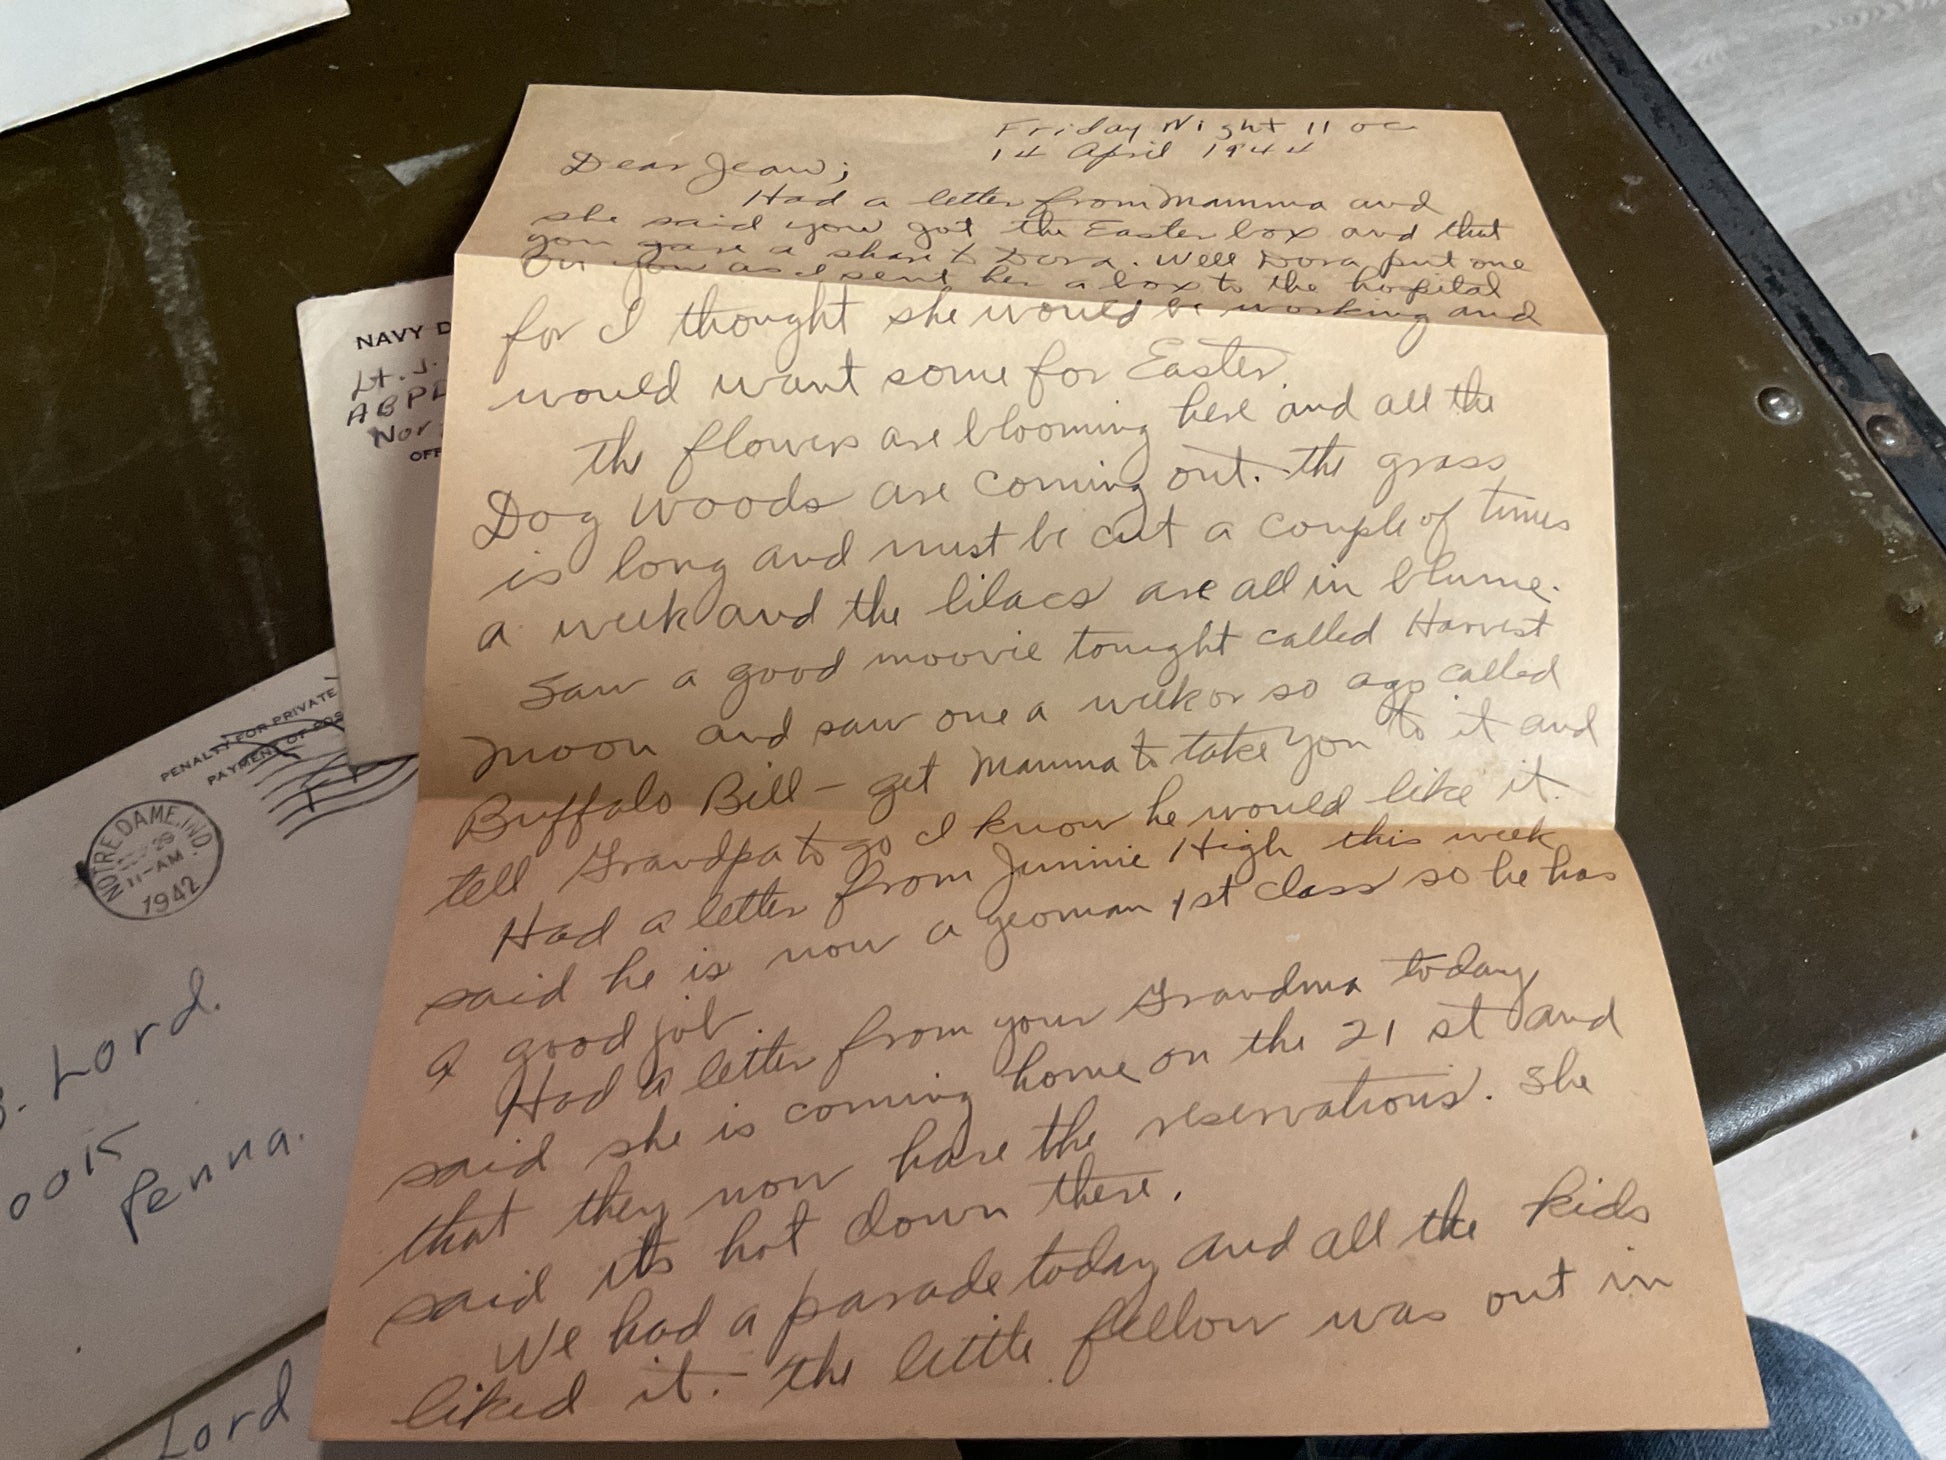 Friday Night 11 oc
14 April 1944
Dear Jean;
Had a letter from Mamma and
she said you got the Easter box and that
you gave a share to Dora. Well Dora put one
on you as I sent her a box to the hospital
for I thought she would be working and
would want some for Easter.
The flowers are blooming here and all the
Dog woods are coming out. The grass
is long and must be cut a couple of times
a week and the lilacs are all in blume.
Saw a good moovie tonight called Harvest
Moon and saw one a week or so ago called
Buffalo Bill - get Mamma to take you to it and
tell Grandpa to go I know he would like it.
Had a letter from Jimmie High this week
said he is now a yeoman 1st class so he has
a good job.
Had a letter from your Grandma today
said she is coming home on the 21 st and
that they now have the reservations. She
said it's hot down there.
We had a parade today and all the kids
liked it. - The little fellow was out in
NAVY D
Lt. J.
ABPD
Nor
OFF
PENALTY FOR PRIVATE
PAYMENT OF POS
NOTRE DAME, IND.
11-AM
1942
Lord.
ook
Penna.
Lord